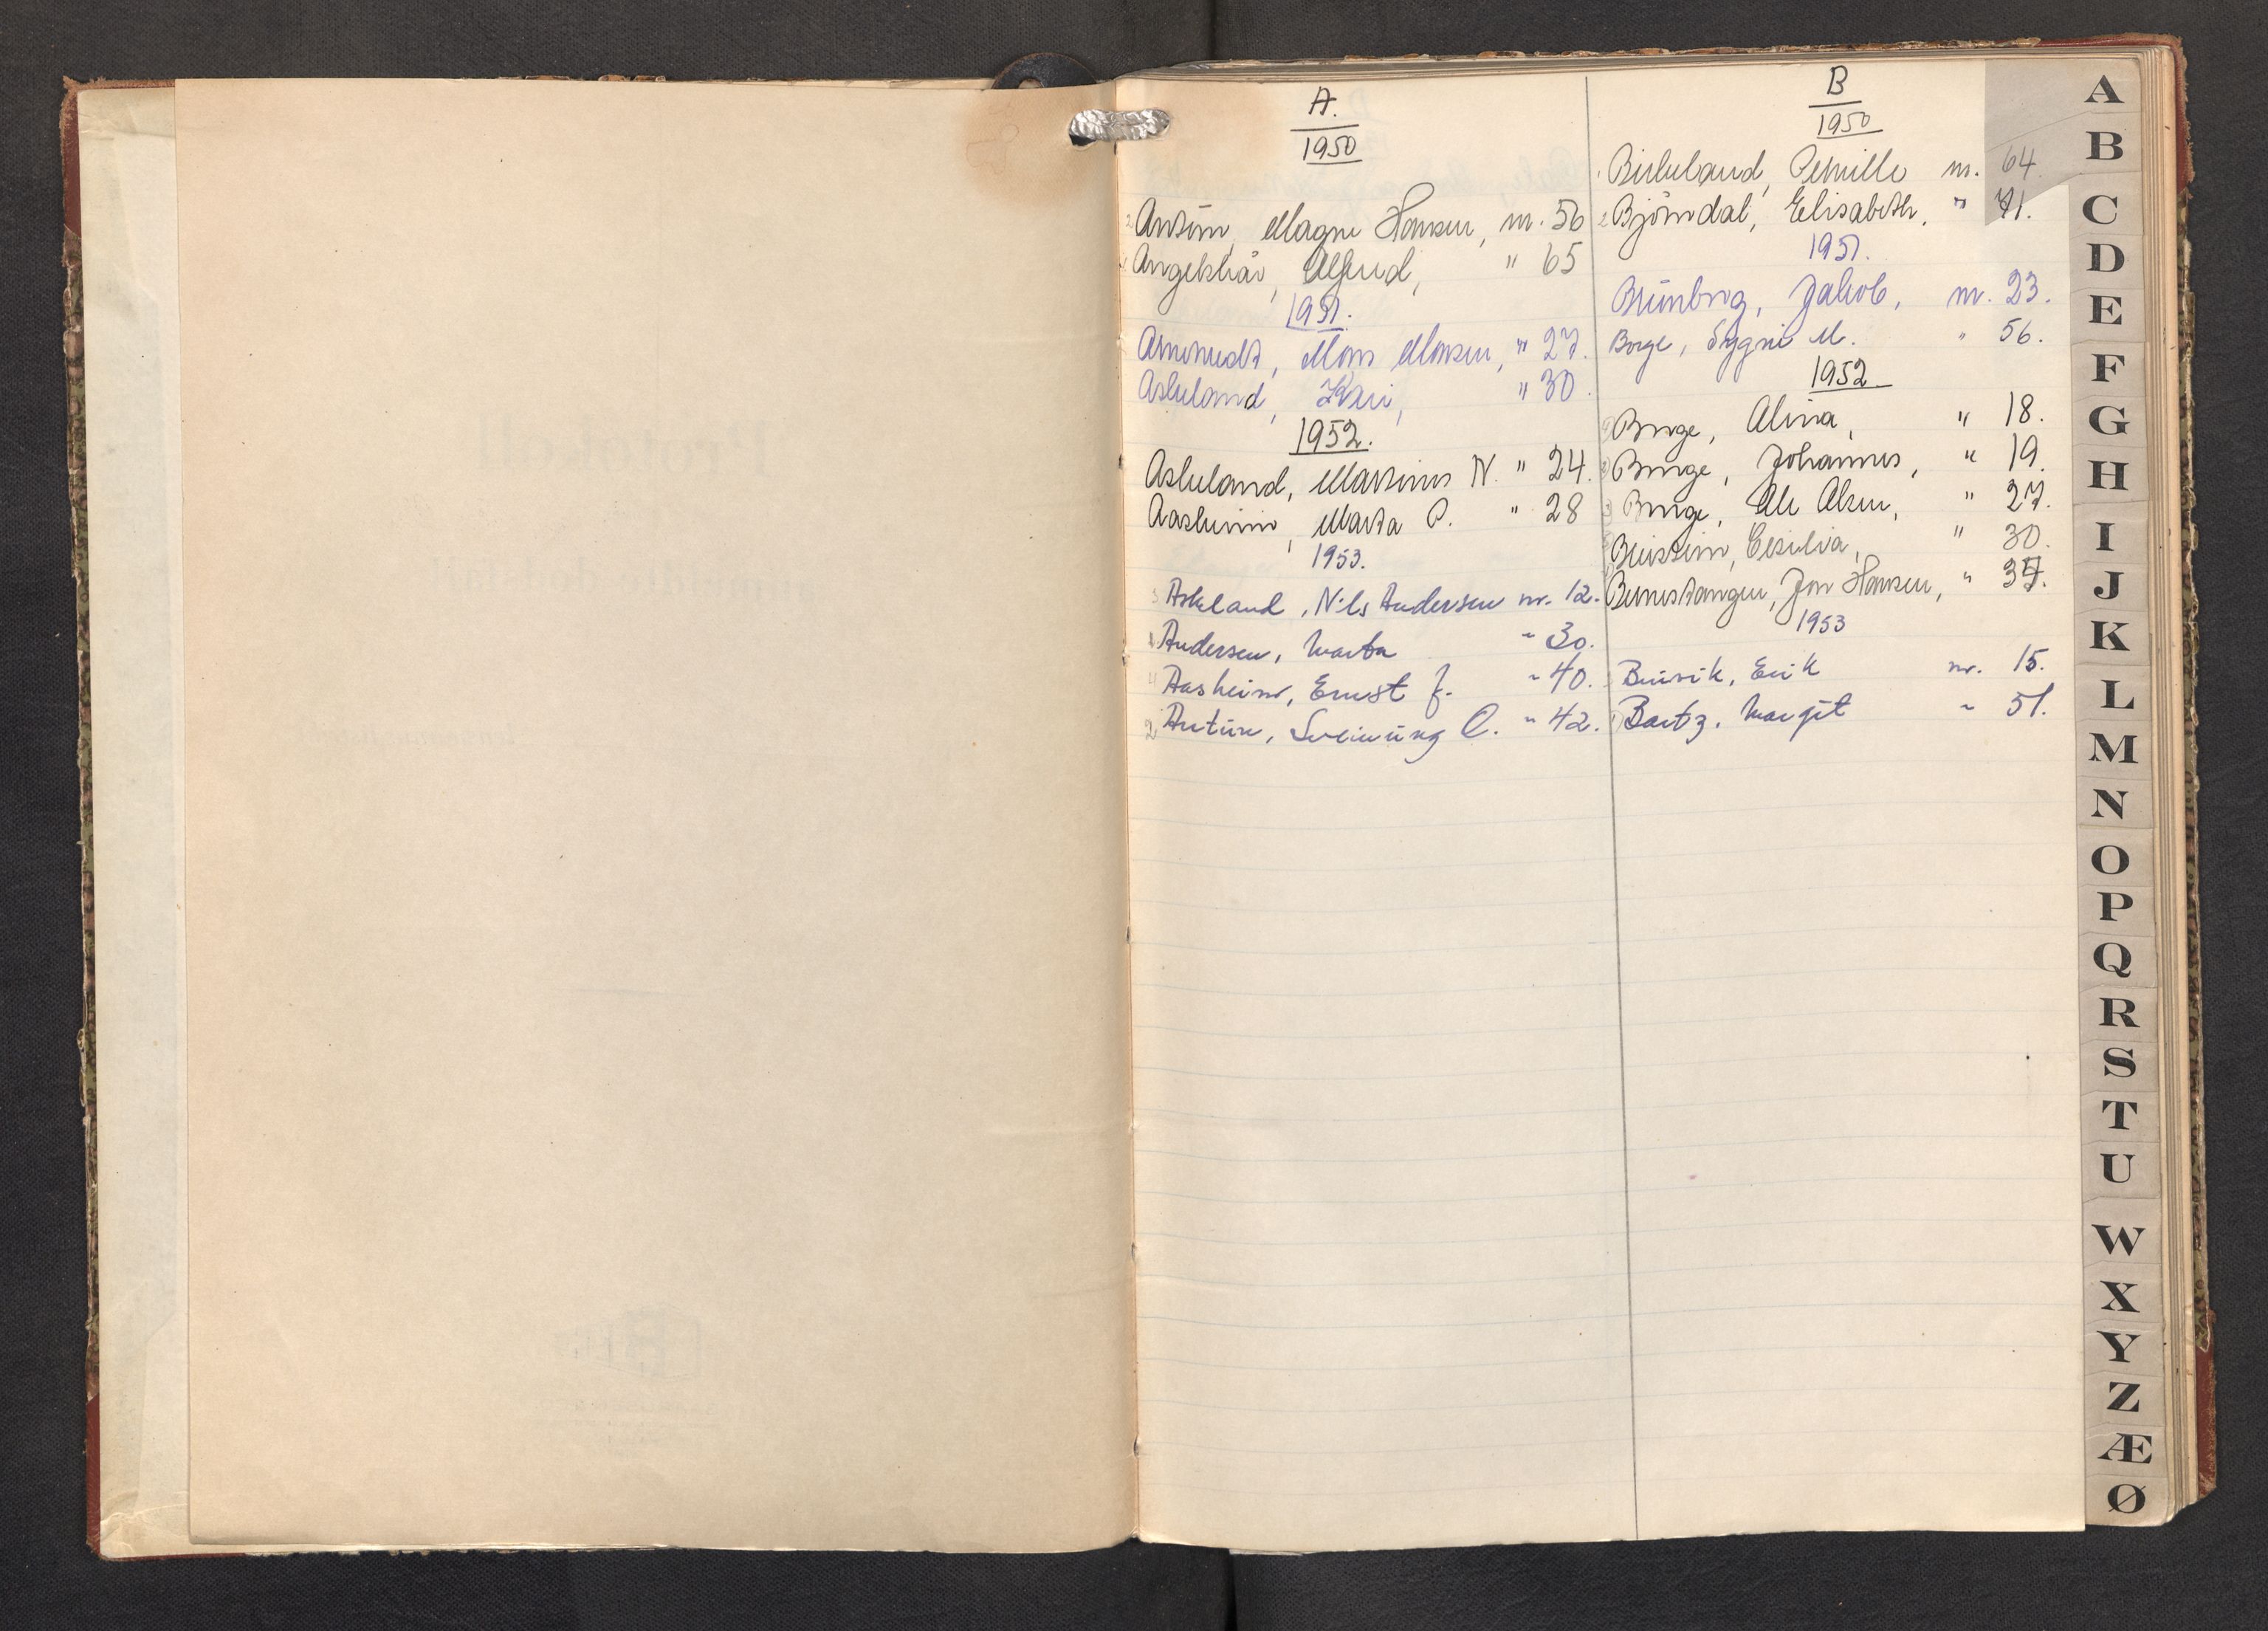 A.
1950
2 Antun, Magne Hansen, nr. 56
1 Angelskår, Alfred, " 65
1951.
Mons Monsen, " 27.
Askeland, Kari, " 30.
1952.
Askeland, Martinus N. " 24.
Aasheim, Marta P. " 28
1953.
3 Askeland, Nils Andersen nr. 12.
1 Andersen, Marta " 30.
4 Aasheim, Ernst J. " 40.
2 Antun, Sveinung O. " 42.
B
1950
1 Birkeland, Pernille nr. 64.
2 Bjørndal, Elisabeth, " 71.
1951.
Jakob, nr. 23.
Borge, Sygni M. " 56.
1952
Berge, Alina, " 18.
Berge, Johannes, " 19.
3 Berge, Ole Olsen, " 27.
Breistein, Cesilia, " 30.
Bernestangen, Jon Hansen, " 37.
1953
Breivik, Erik nr. 15.
1 Bartz, Margit " 51.
A
B
C
D
E
F
G
H
I
J
K
L
M
N
O
P
Q
R
S
T
U
W
X
Y
Z
Æ
Ø